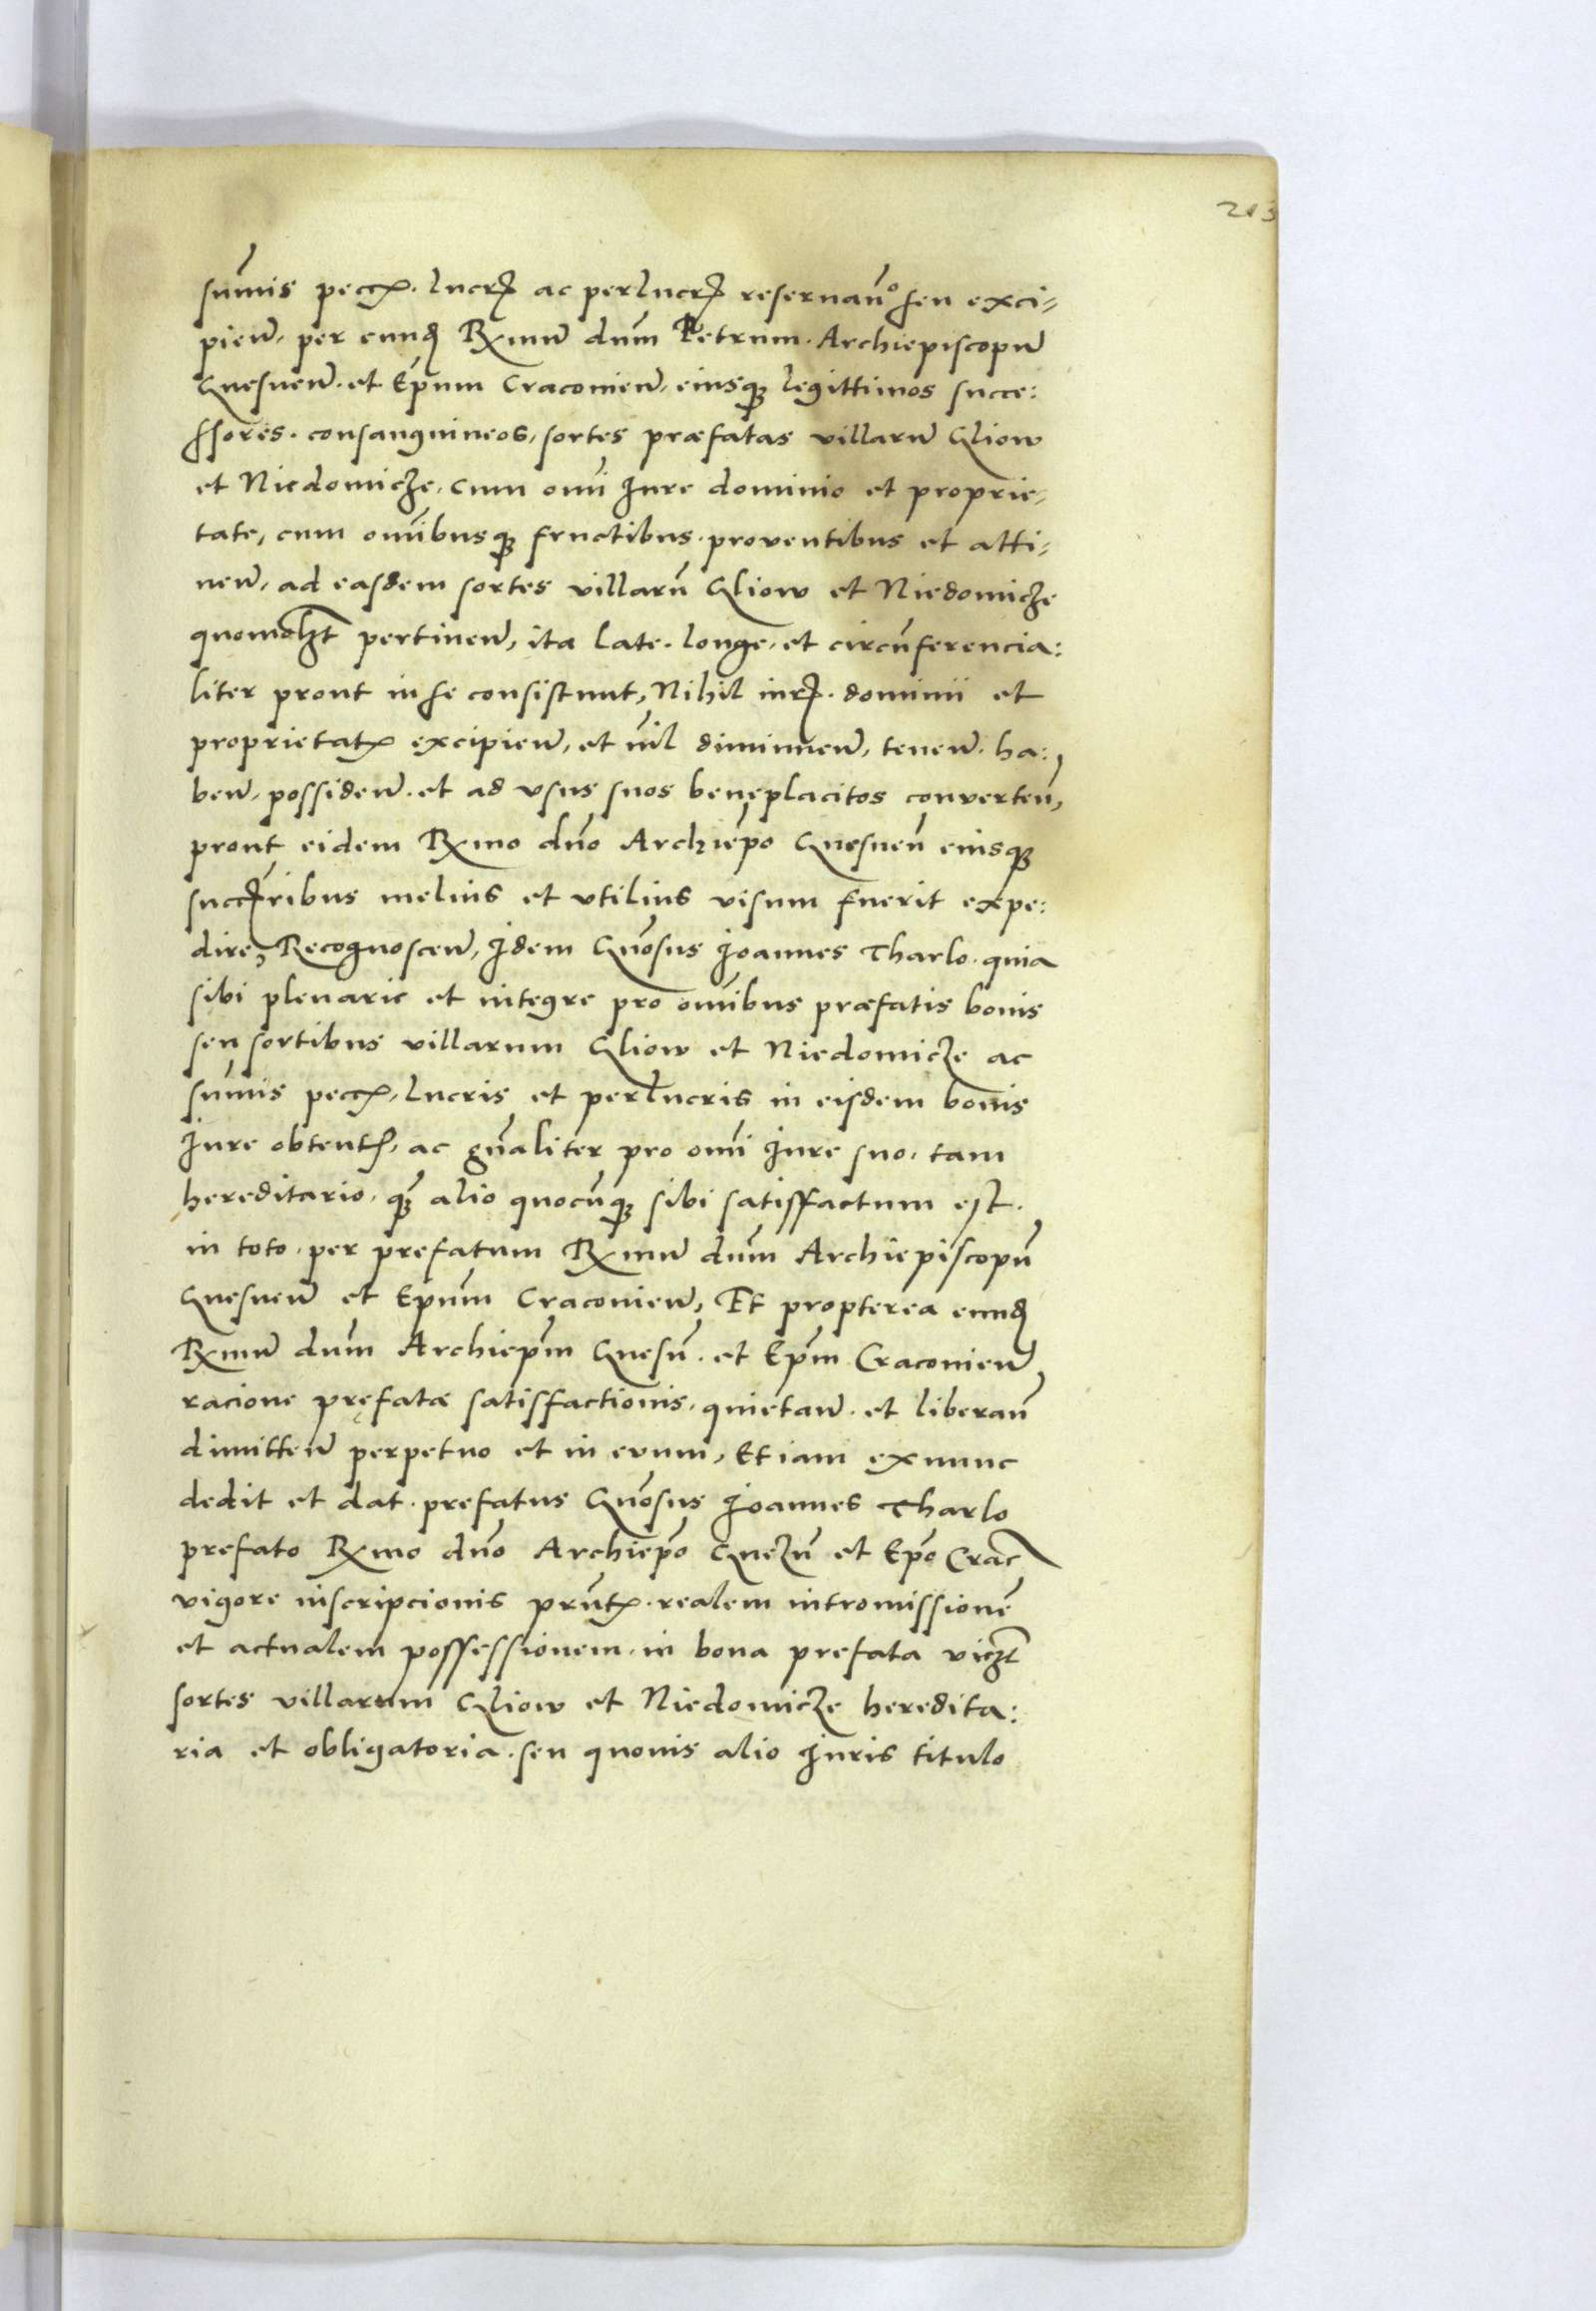 213
sum̄is pecc͞ꝝ. lucrꝫ ac perlucrꝫ reseruan̄° seu exci-
pien̄. per eundꝫ Rx̄mū dn̄m Petrum. Archiepiscopū
Gnesnen̄. et Ep̄um Cracouien̄. eiusqꝫ legittimos succe:
ssores. consanguineos, sortes præfatas villarū Gliow
et Niedomicze. cum om̄i Iure dominio et proprie-
tate, cum om̄ibusqꝫ fructibus. prouentibus et atti-
nen̄. ad easdem sortes villarū Gliow et Niedomicze
quomolꝫt pertinen̄, ita late. longe. et circūferencia:
liter prout in se consistunt, Nihil iurꝫ. dominii et
proprietatꝫ excipien̄, et nīl diminuen̄, tenen̄. ha:
ben̄. possiden̄. et ad vsus suos beneplacitos conuerten̄,
prout eidem Rx̄mo dn̄o Archiēpo Gnesnen̄ eiusqꝫ
succꝫribus melius et vtilius visum fuerit expe:
dire, Recognoscen̄, Idem Gn̄osus Joannes Tharlo. quia
sibi plenarie et integre pro om̄ibus præfatis bonis
seu sortibus villarum Gliow et Niedomicze ac
sum̄is pecc͞ꝝ, lucris et perlucris in eisdem bonis
Iure obtentꝫ, ac gn̄aliter pro om̄i Iure suo, tam
hereditario. qꝫ alio quocūqꝫ sibi satisffactum est.
in toto. per prefatum Rx̄mū dn̄m Archiepiscopū
Gnesnen̄ et Epūm Cracouien̄, Et propterea eundꝫ
Rx̄mū dn̄m Archiep̄m Gnesn̄. et Ep̄m Cracouien̄
racione pręfatæ satisffactionis. quietan̄. et liberan̄
dimitten̄ perpetuo et in euum, Etiam ex nunc
dedit et dat. prefatus Gn̄osus Joannes Tharlo
prefato Rx̄mo dn̄o Archiep̄o Gnezn̄ et Ep̄o Crac̄
vigore inscripcionis prn̄tꝫ. realem intromissionē
et actualem possessionem. in bona prefata vicꝫt
sortes villarum Gliow et Niedomicze heredita:
ria et obligatoria. seu quouis alio Iuris titulo